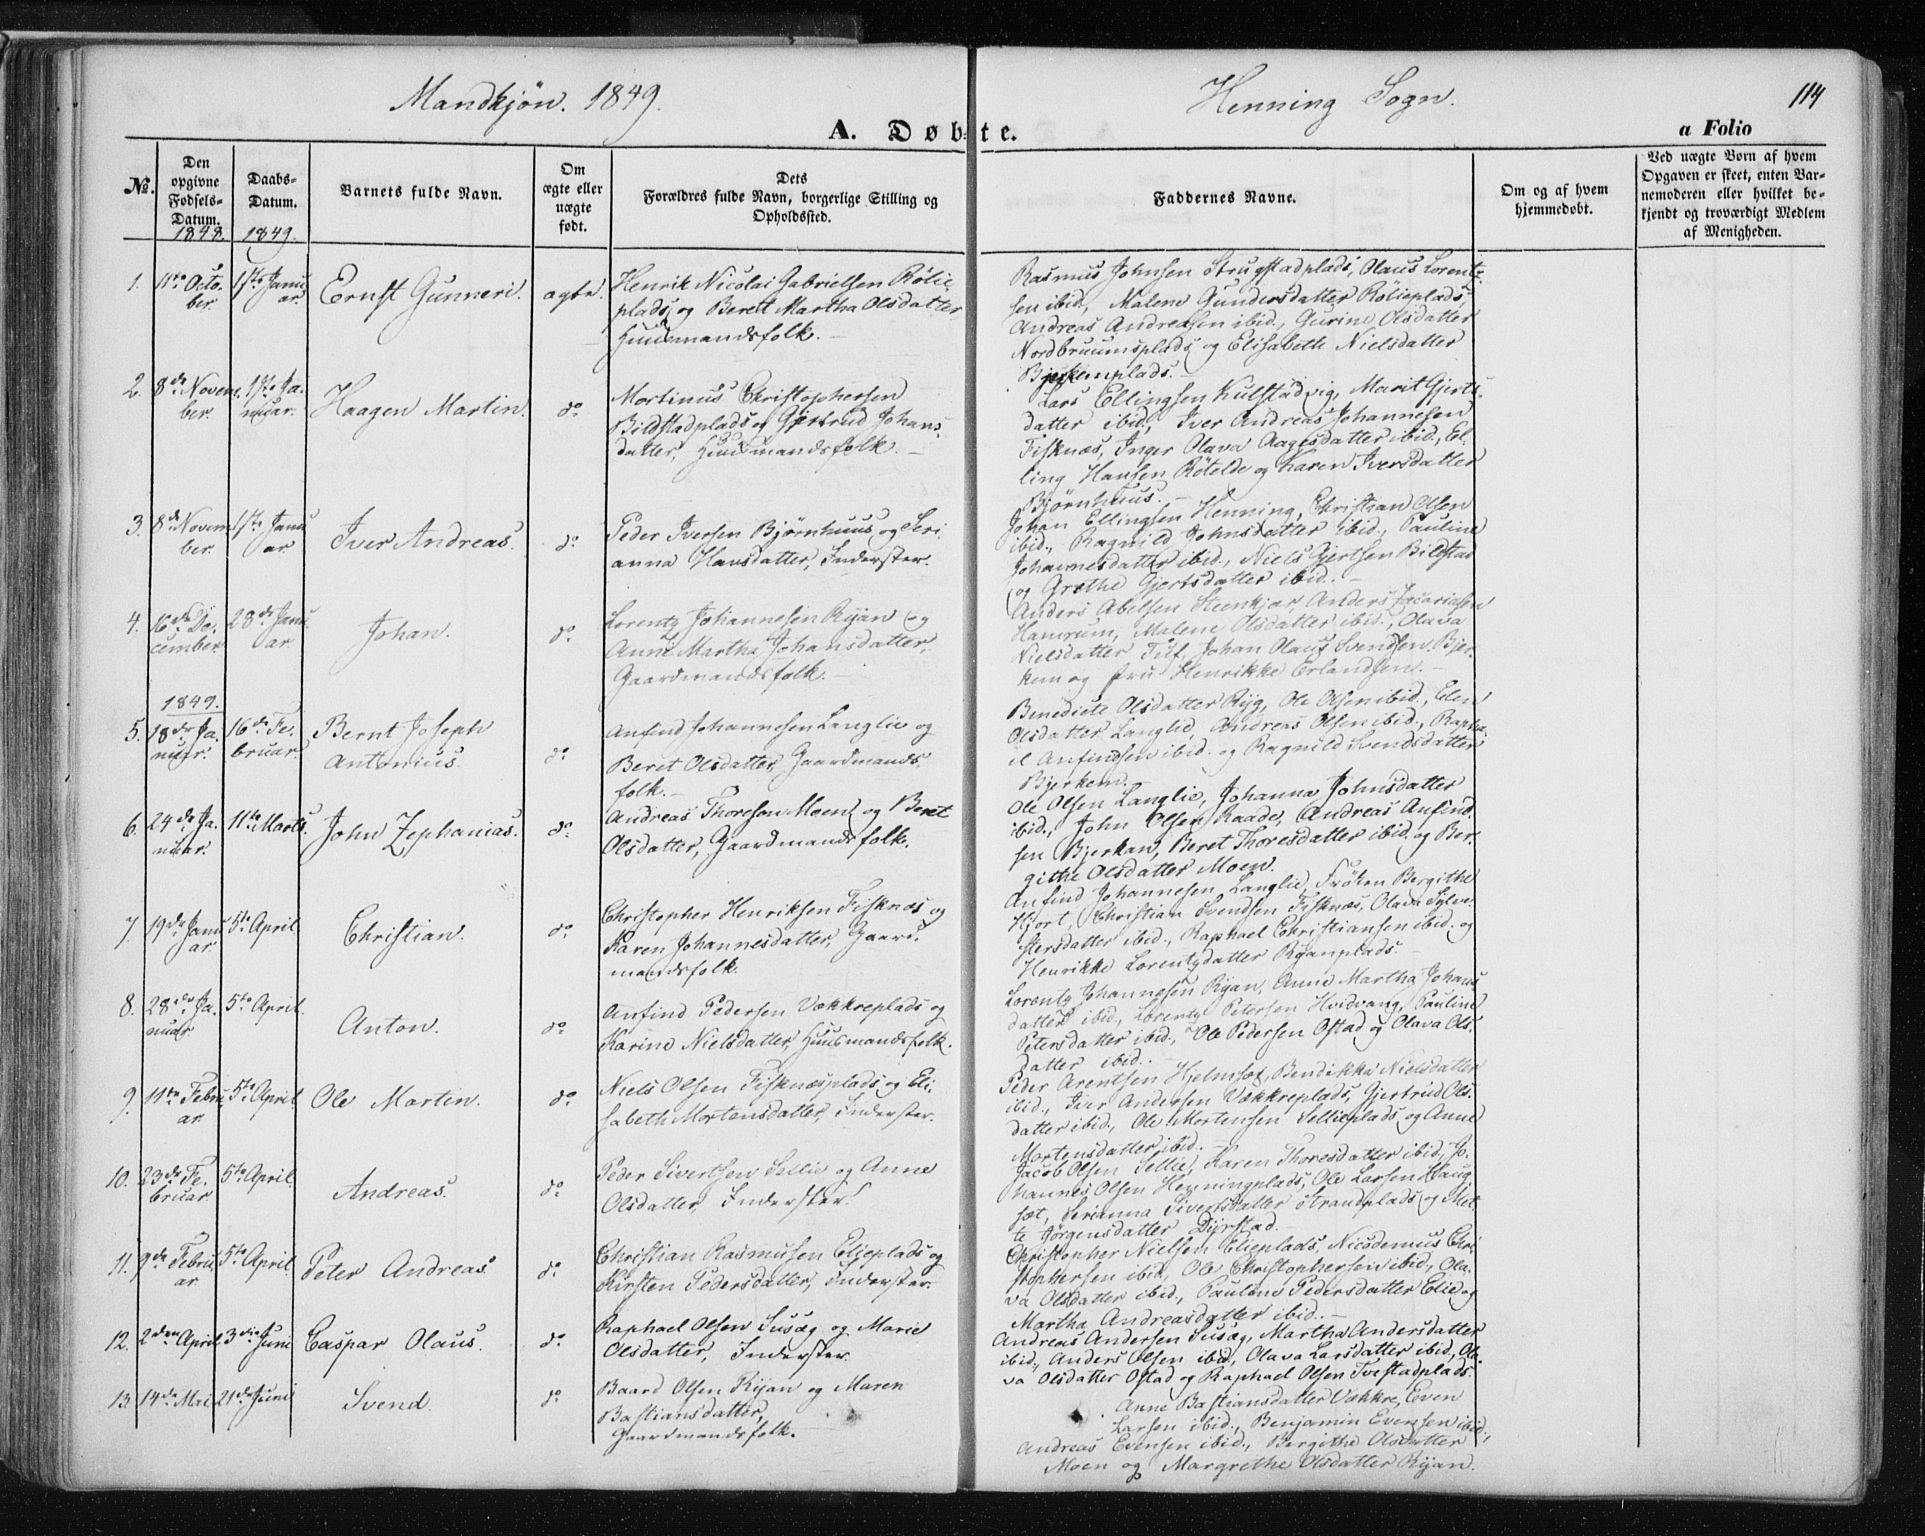 Mandkjøn. 1849.
Henning Sogn.
114
A. Døbte.
a Folio
No.
Den opgivne Fødsels-Datum.
1848.
Daabs-Datum.
1849.
Barnets fulde Navn.
Om ægte eller uægte født.
Dets Forældres fulde Navn, borgerlige Stilling og Opholdssted.
Faddernes Navne.
Om og af hvem hjemmedøbt.
Ved uægte Børn af hvem Opgaven er skeet, enten Barnemoderen eller hvilket bekjendt og troværdigt Medlem af Menigheden.
1. 11te October. 1ste Januar. Ernst Gunneri. ægte.
Henrik Nicolai Gabrielsen Rølie-
plads og Berett Martha Olsdatter
Huusmandsfolk.
Rasmus Johnsen Strugstadplads, Olaus Lorent-
sen ibid., Malene Gundersdatter Rølieplads,
Andreas Andreasen ibid., Gurine Olsdatter
Nordbruumsplads og Elisabeth Nielsdatter
Bjerkemplads.
2. 8de November. 1ste Januar. Haagen Martin. do
Mortinus Christophersen
Bildstadplads og Gjertrud Johans-
datter, Huusmandsfolk.
Lars Ellingsen Kulstadvig, Marit Gjerts-
datter ibid., Iver Andreas Johannesen
Fisknæs, Inger Olava Aagesdatter ibid., El-
ling Hansen Røtelde og Karen Iversdatter
Bjørnhuus.
3. 8de November. 1ste Januar Iver Andreas. do
Peder Iversen Bjørnhuus og Seri-
anna Hansdatter, Inderster.
Johan Ellingsen Henning, Christian Olsen
ibid., Ragnild Johnsdatter ibid., Pauline
Johannesdatter ibid., Niels Gjertsen Bildstad
og Grethe Gjertsdatter ibid.
4. 16de December 28de Januar. Johan. do
Lorentz Johannesen Ryan og
Anne Martha Johansdatter,
Gaardmandsfolk.
Anders Abelsen Steenkjær, Anders Zacariasen
Hamrum, Malene Olsdatter ibid., Olava
Nielsdatter Tuf, Johan Olaus Svendsen Bjer-
kem og fru Henrikke Erlandsen.
1849.
5. 18de Januar. 16de Februar. Bernt Joseph
Antonius. do
Anfind Johannesen Langlie og
Beret Olsdatter, Gaardmands-
folk.
Benedicte Olsdatter Ryg, Ole Olsen ibid., Elen
Olsdatter Langlie, Andreas Olsen ibid., Rapha-
el Anfindsen ibid. og Ragnild Svendsdatter
Bjerkem.
6. 24de Januar. 11te Marts. John Zephanias. do
Andreas Thoresen Moen og Beret
Olsdatter, Gaardmandsfolk.
Ole Olsen Langlie, Johanna Johnsdatter
ibid., John Olsen Raade, Andreas Anfind-
sen Bjerkan, Beret Thoresdatter ibid. og Ber-
githe Olsdatter Moen.
7. 19de Januar 5te April Christian. do
Christopher Henriksen Fisknæs og
Karen Johannesdatter, Gaard-
mandsfolk.
Anfind Johannesen Langlie, Frøken Bergithe
Hjort, Christian Svendsen Fisknæs, Olava Sylve-
stersdatter ibid., Raphael Christiansen ibid. og
Henrikke Lorentzdatter Ryanplads.
8. 28de Januar. 5te April. Anton. do
Anfind Pedersen Vækkreplads og
Karine Nielsdatter, Huusmandsfolk.
Lorentz Johannesen Ryan, Anne Martha Johans-
datter ibid., Lorentz Petersen Hvidvang, Pauline
Petersdatter ibid., Ole Pedersen Ostad og Olava Ols-
datter ibid.
9. 11te Februar. 5te April Ole Martin. do
Niels Olsen Fisknæsplads og Eli-
sabeth Mortensdatter, Inderster.
Peder Arentsen Hjelmset, Bendikka Nielsdatter
ibid., Iver Andersen Vækkreplads, Gjertrud Ols-
datter ibid., Ole Mortensen Sellieplads og Anne
Mortensdatter ibid.
10. 23de Februar. 5te April. Andreas. do
Peder Sivertsen Sellie og Anne
Olsdatter, Inderster.
Jacob Olsen Sellie, Karen Thoresdatter ibid., Jo-
hannes Olsen Henningplads, Ole Larsen Haug-
sæt, Serianna Sivertsdatter Strandplads og Met-
te Jørgensdatter Dyrstad.
11. 9de Februar 5te April. Peter Andreas do
Christian Rasmussen Elieplads og
Kirsten Pedersdatter, Inderster.
Christopher Nielsen Elieplads, Nicodemus Chri-
stophersen ibid., Ole Christophersen ibid., Ola-
va Olsdatter ibid., Pauline Pedersdatter Elie og
Martha Andreasdatter ibid.
12. 2den April 3die Juni Caspar Olaus. do
Raphael Olsen Susæg og Marie
Olsdatter, Inderster.
Andreas Andersen Susæg, Martha Andersdatter
ibid., Anders Olsen ibid., Olava Larsdatter ibid., Ola-
va Olsdatter Ostad og Raphael Olsen Tvestadplads.
13. 14de Mai 21de Juni Svend. do
Baard Olsen Ryan og Maren
Bastiansdatter,
Gaardmandsfolk.
Anne Bastiansdatter Vækkre, Even
Larsen ibid., Benjamin Evensen ibid.,
Andreas Evensen ibid., Bergithe Olsdatter
Moen og Margrethe Olsdatter Ryan.